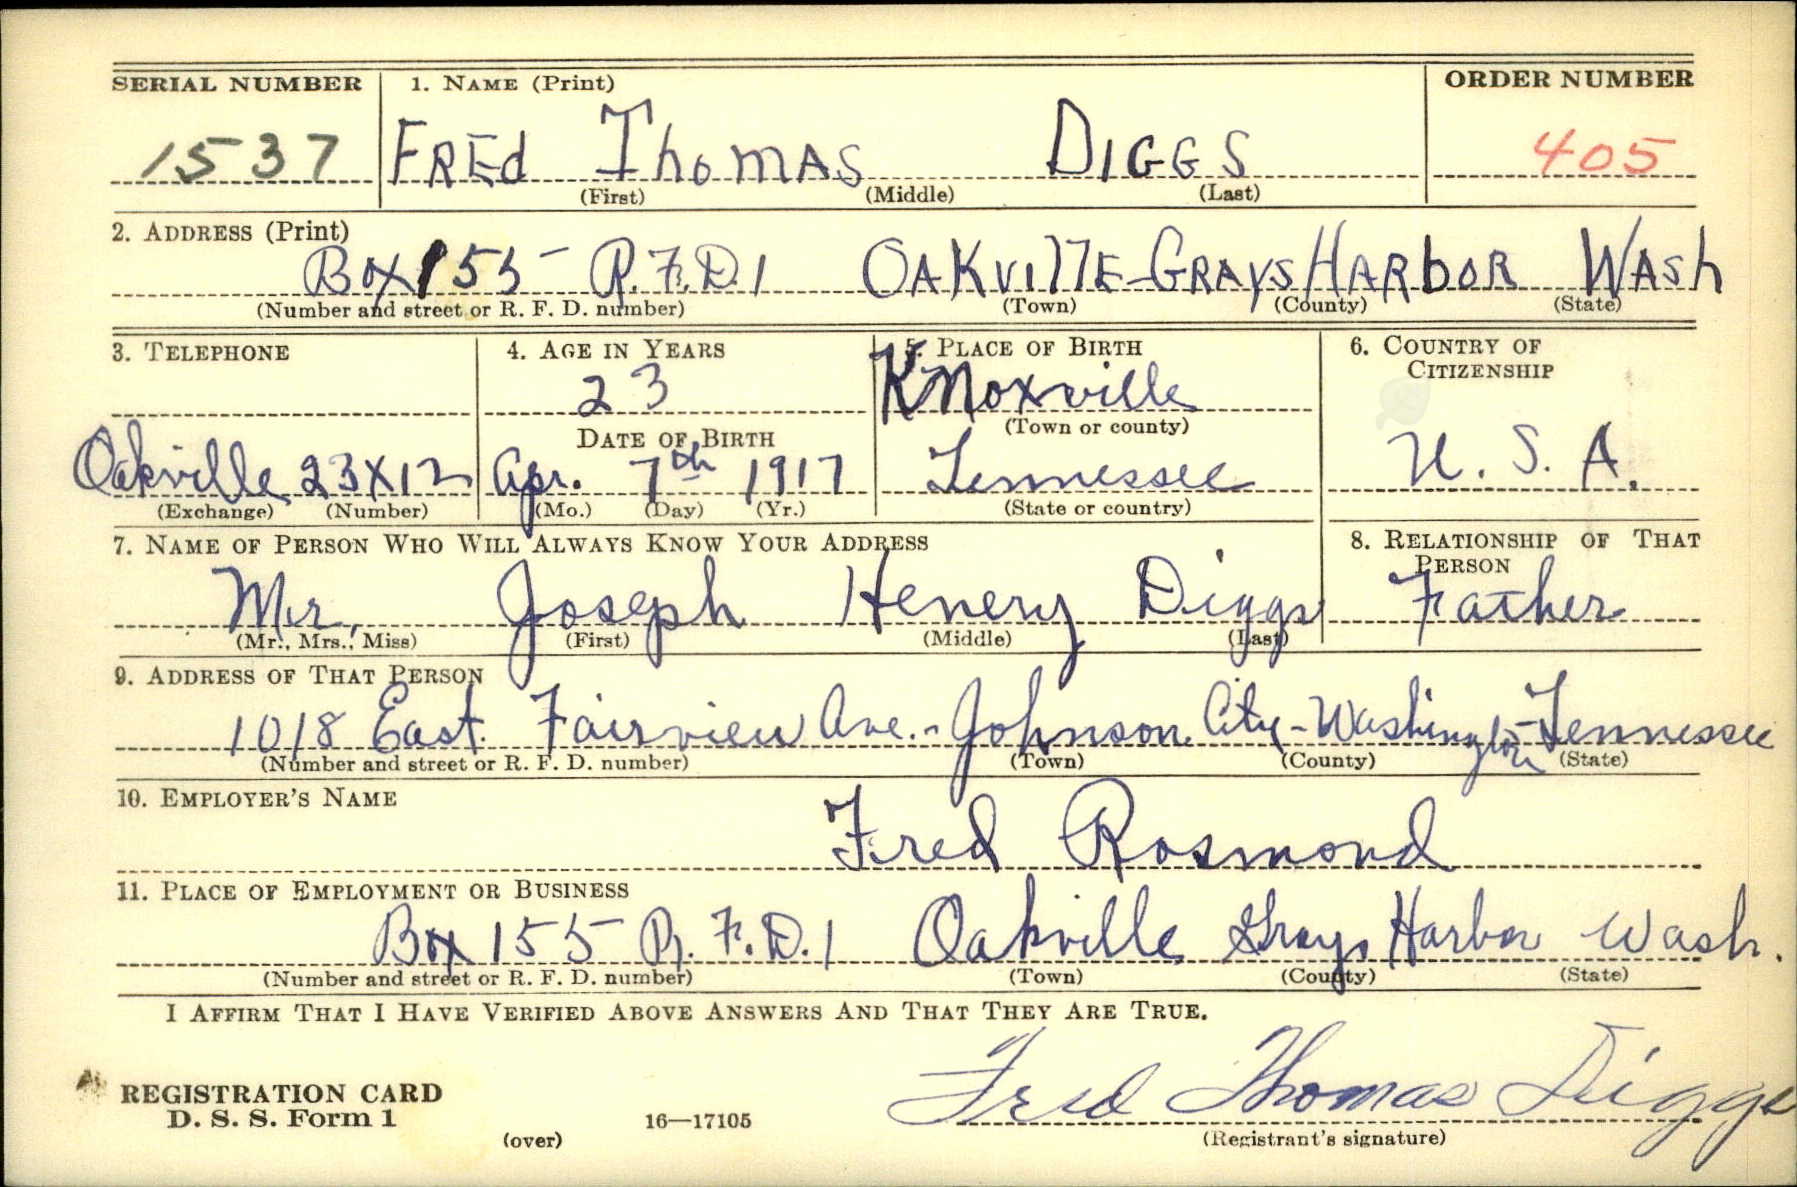 SERIAL NUMBER 1. NAME (Print) ORDER NUMBER
1537 FREd ThomAS DIGGS 405
(First) (Middle) (Last)
2. ADDRESS (Print)
Box 155 R.F.D.1 OAKVIllE-GRAYS HARbOR WASh
(Number and street or R. F. D. number) (Town) (County) (State)
3. TELEPHONE 4. AGE IN YEARS 5. PLACE OF BIRTH 6. COUNTRY OF
CITIZENSHIP
23 Knoxville
(Town or county)
DATE OF BIRTH
Oakville 23X12 Apr. 7th 1917 Tennessee U. S. A.
(Exchange) (Number) (Mo.) (Day) (Yr.) (State or country)
7. NAME OF PERSON WHO WILL ALWAYS KNOW YOUR ADDRESS 8. RELATIONSHIP OF THAT
PERSON
Mr. Joseph Henery Diggs Father
(Mr., Mrs., Miss) (First) (Middle) (Last)
9. ADDRESS OF THAT PERSON
1018 East Fairview Ave.-Johnson City-Washington-Tennessee
(Number and street or R. F. D. number) (Town) (County) (State)
10. EMPLOYER'S NAME
Fred Rosmond
11. PLACE OF EMPLOYMENT OR BUSINESS
Box 155 R.F.D.1 Oakville Grays Harbor Wash.
(Number and street or R. F. D. number) (Town) (County) (State)
I AFFIRM THAT I HAVE VERIFIED ABOVE ANSWERS AND THAT THEY ARE TRUE.
REGISTRATION CARD
D. S. S. Form 1 Fred Thomas Diggs
(over) 16—17105 (Registrant's signature)